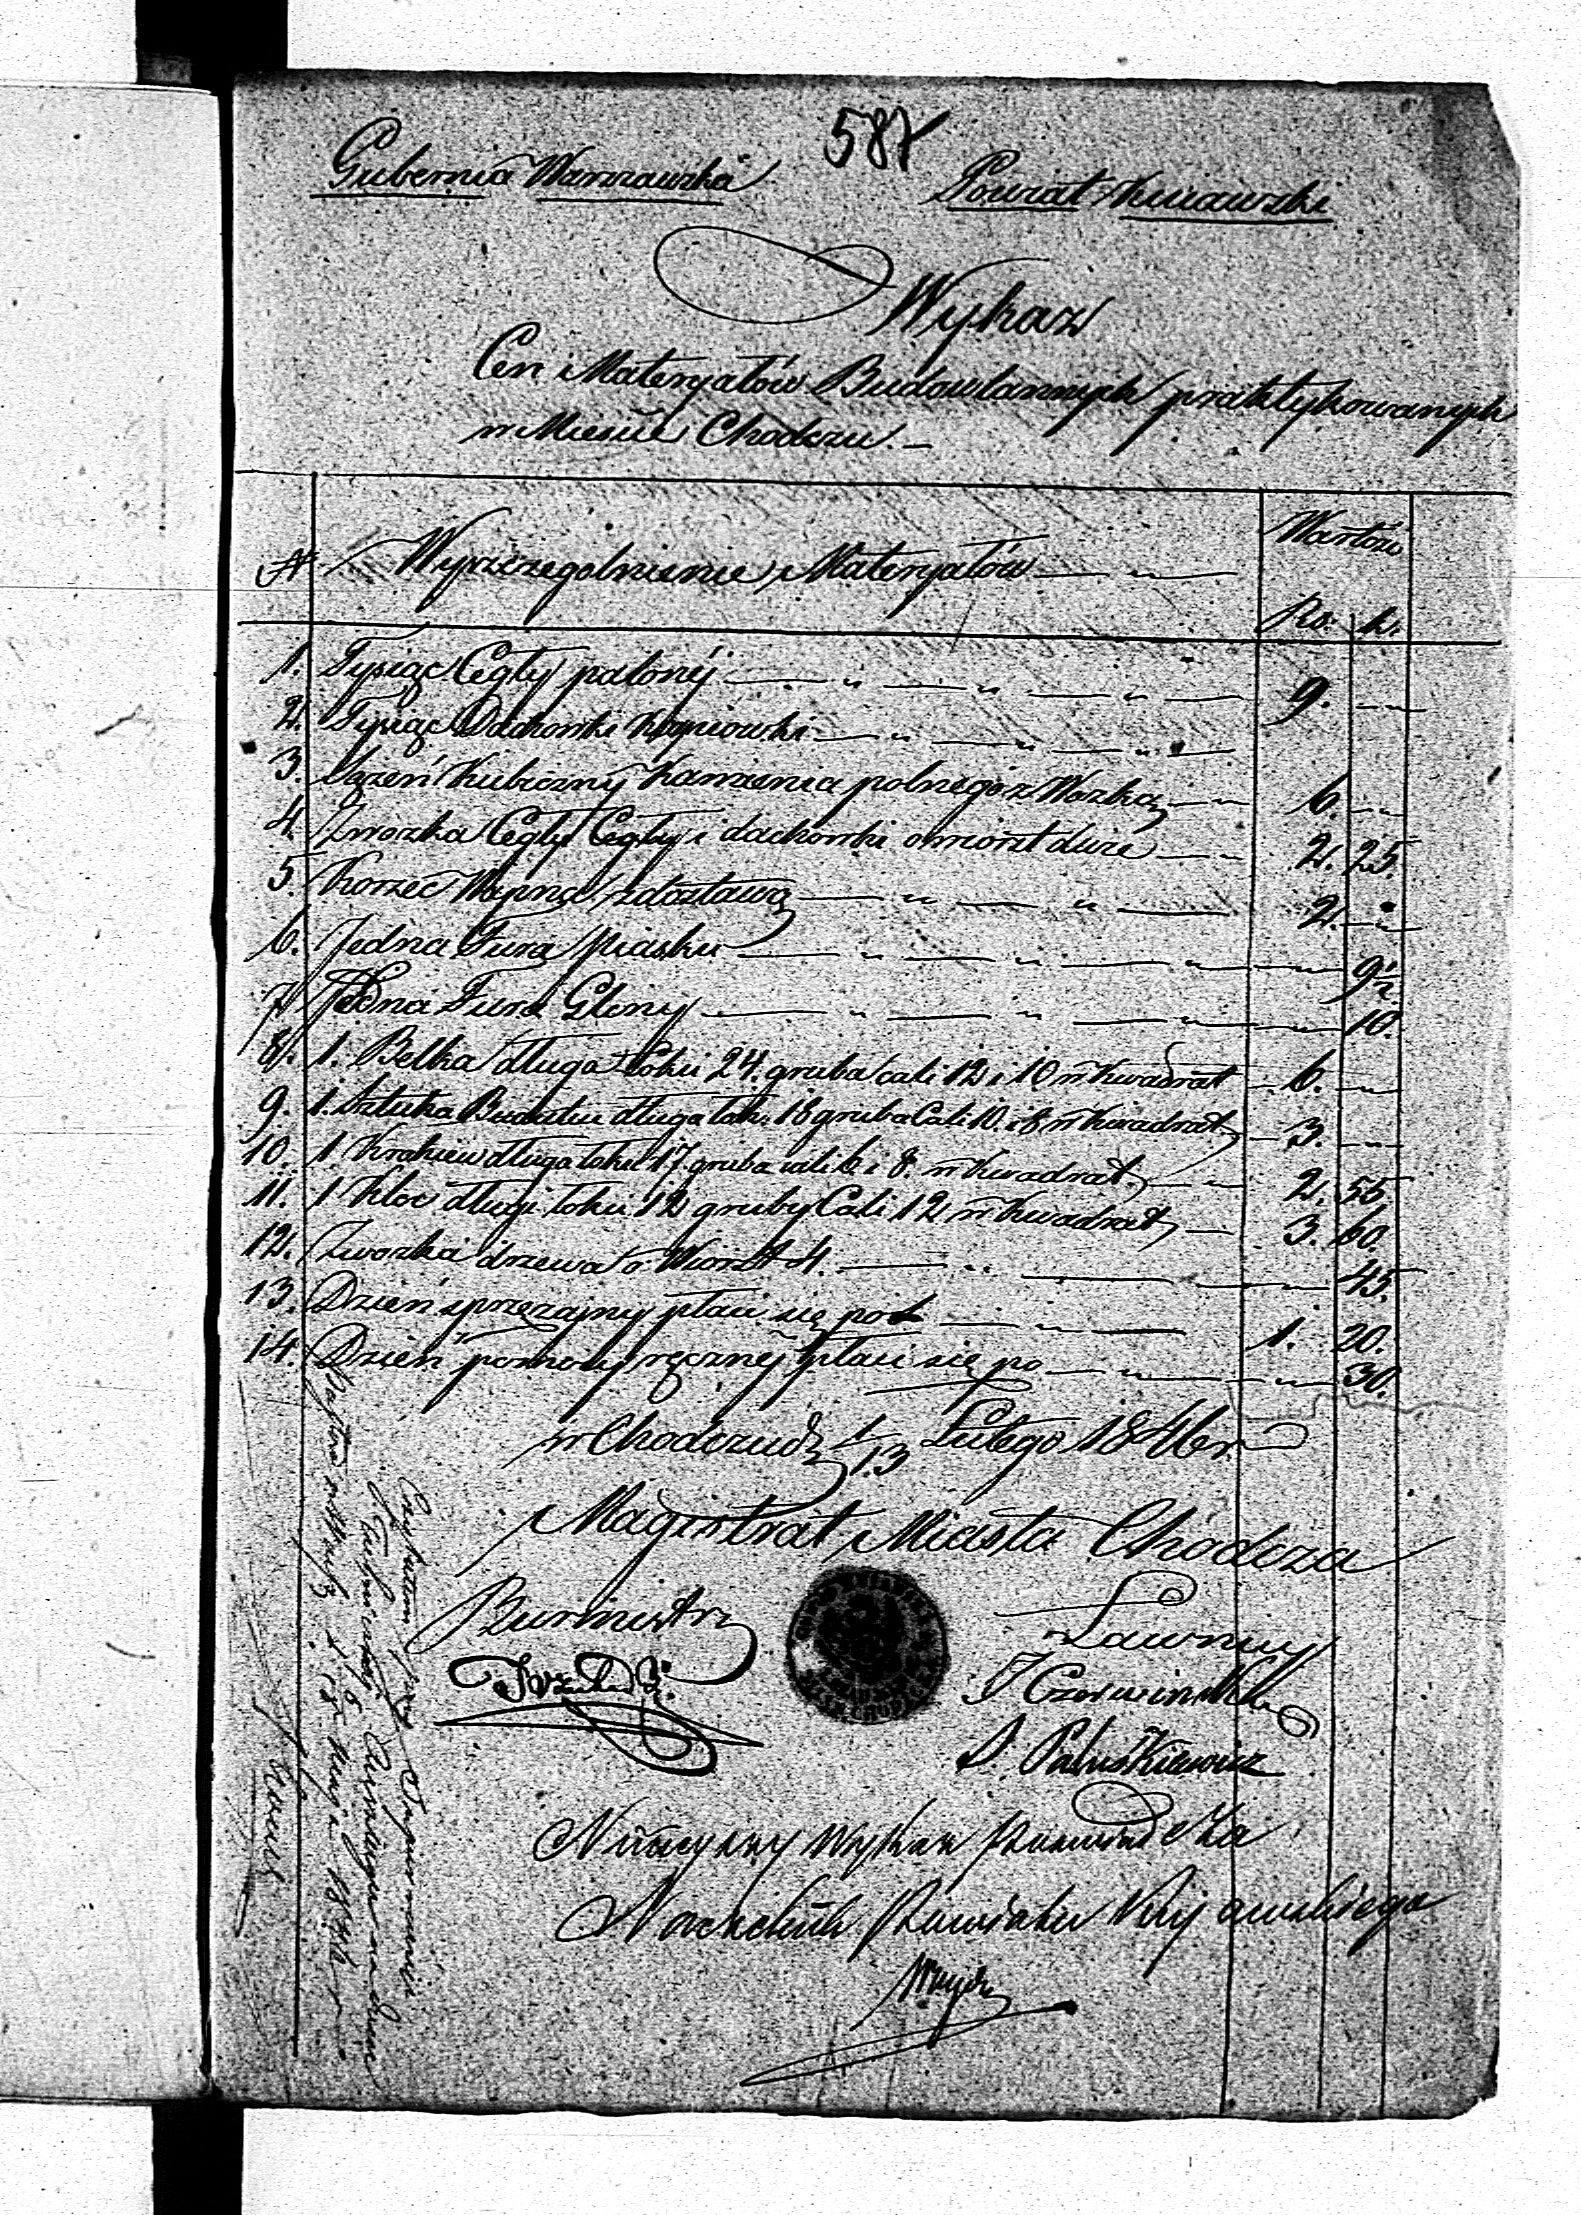 587
Gubernia Warszawska
Powiat Kujawski
Wykaz
Cen Materyałów Budowlannych praktykowanych
w Mieście Chodczu.
№ Wyszczególnienie Materyałów Wartość
Rs. k.
1. Tysiąc Cegły palonéj 9. —
2. Tysiąc Dachówki
3. Sążeń Kubiczny Kamienia polnego z Wozką 6. —
4. Zwózka Cegły Cegły i dachówki o wiorst dwie 2. 25.
5. Korzec Wapna z dostawą 2. —
6. Jedna Fura Piasku 9½
7. Jedna Fura Gliny 10.
8. 1. Belka długa łokci 24. gruba cali 12 i 10 w Kwadrat 6. —
9. 1. Sztuka długa łok: 18 gruba Cali 10. i 8 w Kwadrat 3. —
10. 1. Krokiew długa łokci 17. gruba cali 6 i 8. w Kwadrat 2. 55
11. 1 Kloc długi łokci 12 gruby Cali 12 w Kwadrat 3. 60.
12. Zwózka drzewa o Wiorst 4. 45.
13. Dzień sprzężajny płaci się po 1. 20.
14. Dzień pomocy ręcznéj płaci się po 30.
w Chodczu d 1/13 Lutego 1846 r.
Magistrat Miasta Chodcza
Burmistrz
Ławnicy
J Czerwiński
D. Paluszkiewicz
Niniejszy wykaz poświadcza
Naczelnik Powiatu Kujawskiego